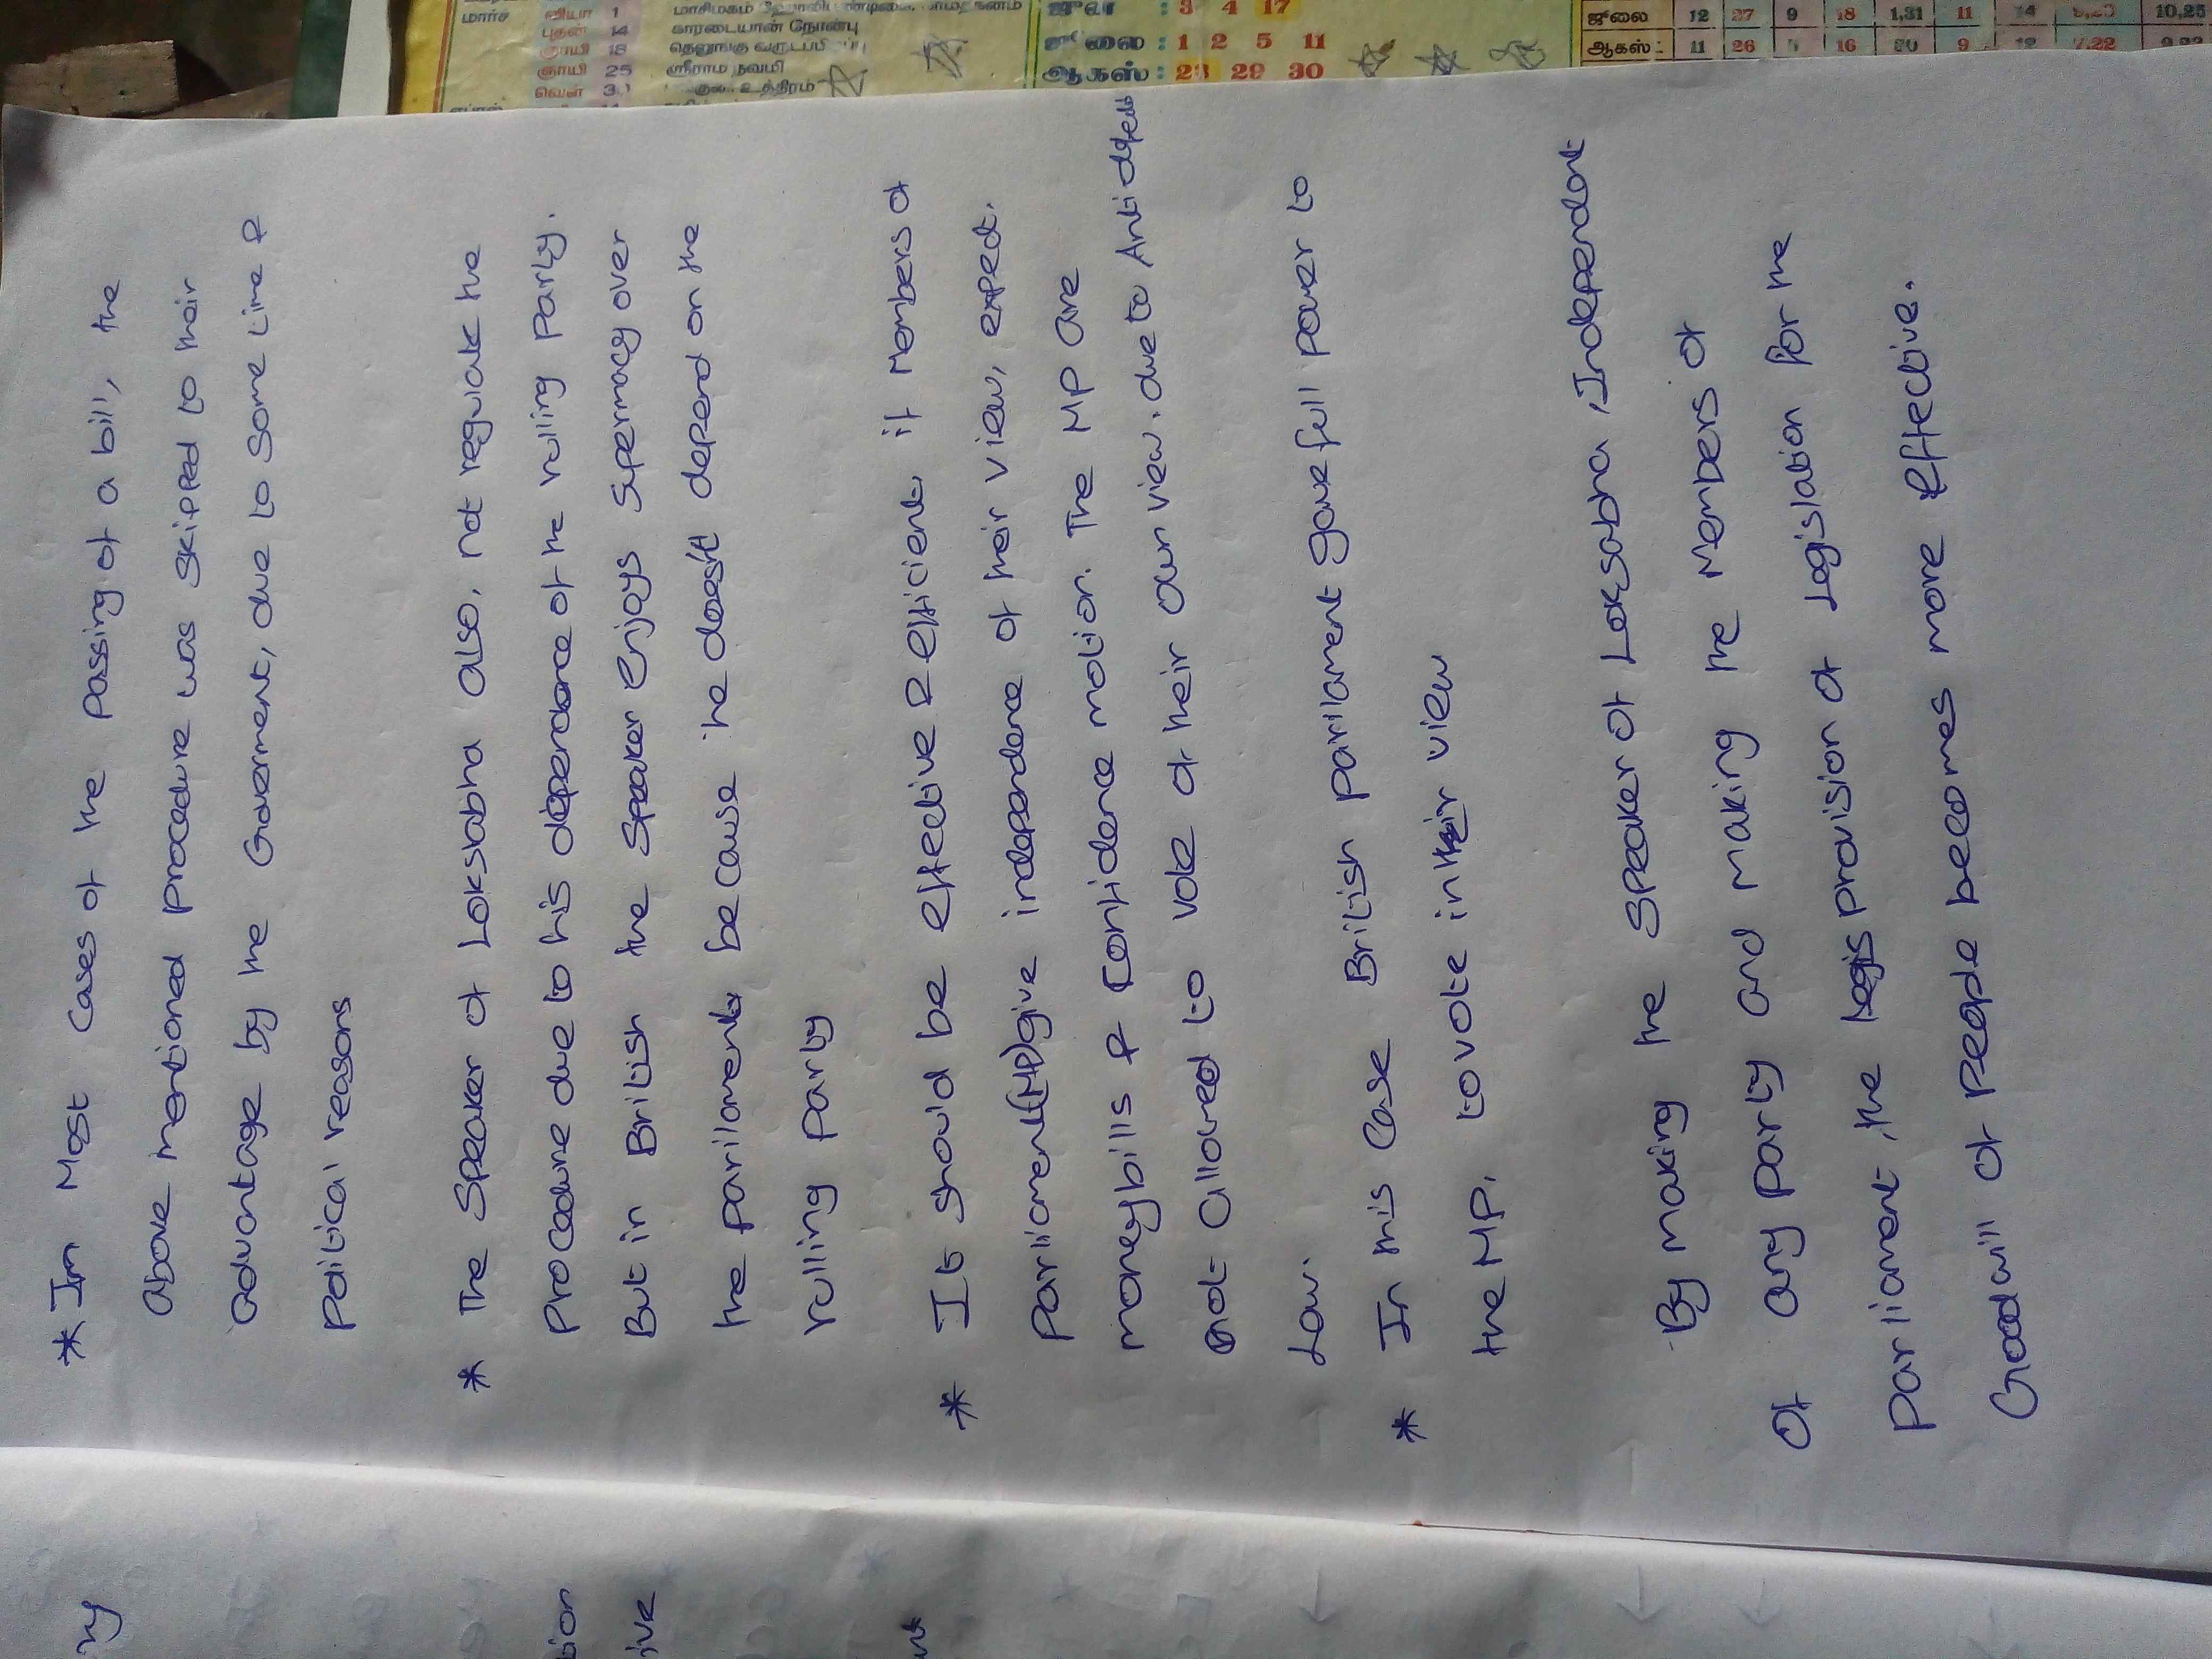 * In Most Cases of the Passing of a bill, the
above mentioned procedure was skipped to their
advantage by the Goverment, due to some time &
Political reasons
* The Speaker of Loksabha also, not regulate the
Procedure due to his dependence of the ruling Party.
But in British the Speaker enjoys Supermacy over
the parilament because he doesn't depend on the
rulling party
* It should be effective & efficient, if Members of
Parliament (MP) give independence of their view, expect.
moneybills & Confidence motion. The MP are
not allowed to vote of their own view. due to Anti
Law.
* In this Case British Parilament gave full power to
the MP, to vote in their view
By making the Speaker of Loksabha, Independent
of any Party and making the Members of
Parliament, the provision of Legislation for the
Goodwill of People becomes more effective.
ny
tion
ive
மார்ச் வியா 1 மாசிமகம்
புதன் 14 காரடையான் நோன்பு
ஞாயி 18 தெலுங்கு
ஞாயி 25 ஸ்ரீராம நவமி
வெள் உத்திரம்
3 4 17
ஜூலை : 1 2 5 11
ஆகஸ் : 23 29 30
ஜூலை 12 27 9 18 1,31 11 14 10,25
ஆகஸ் : 11 26 16 9